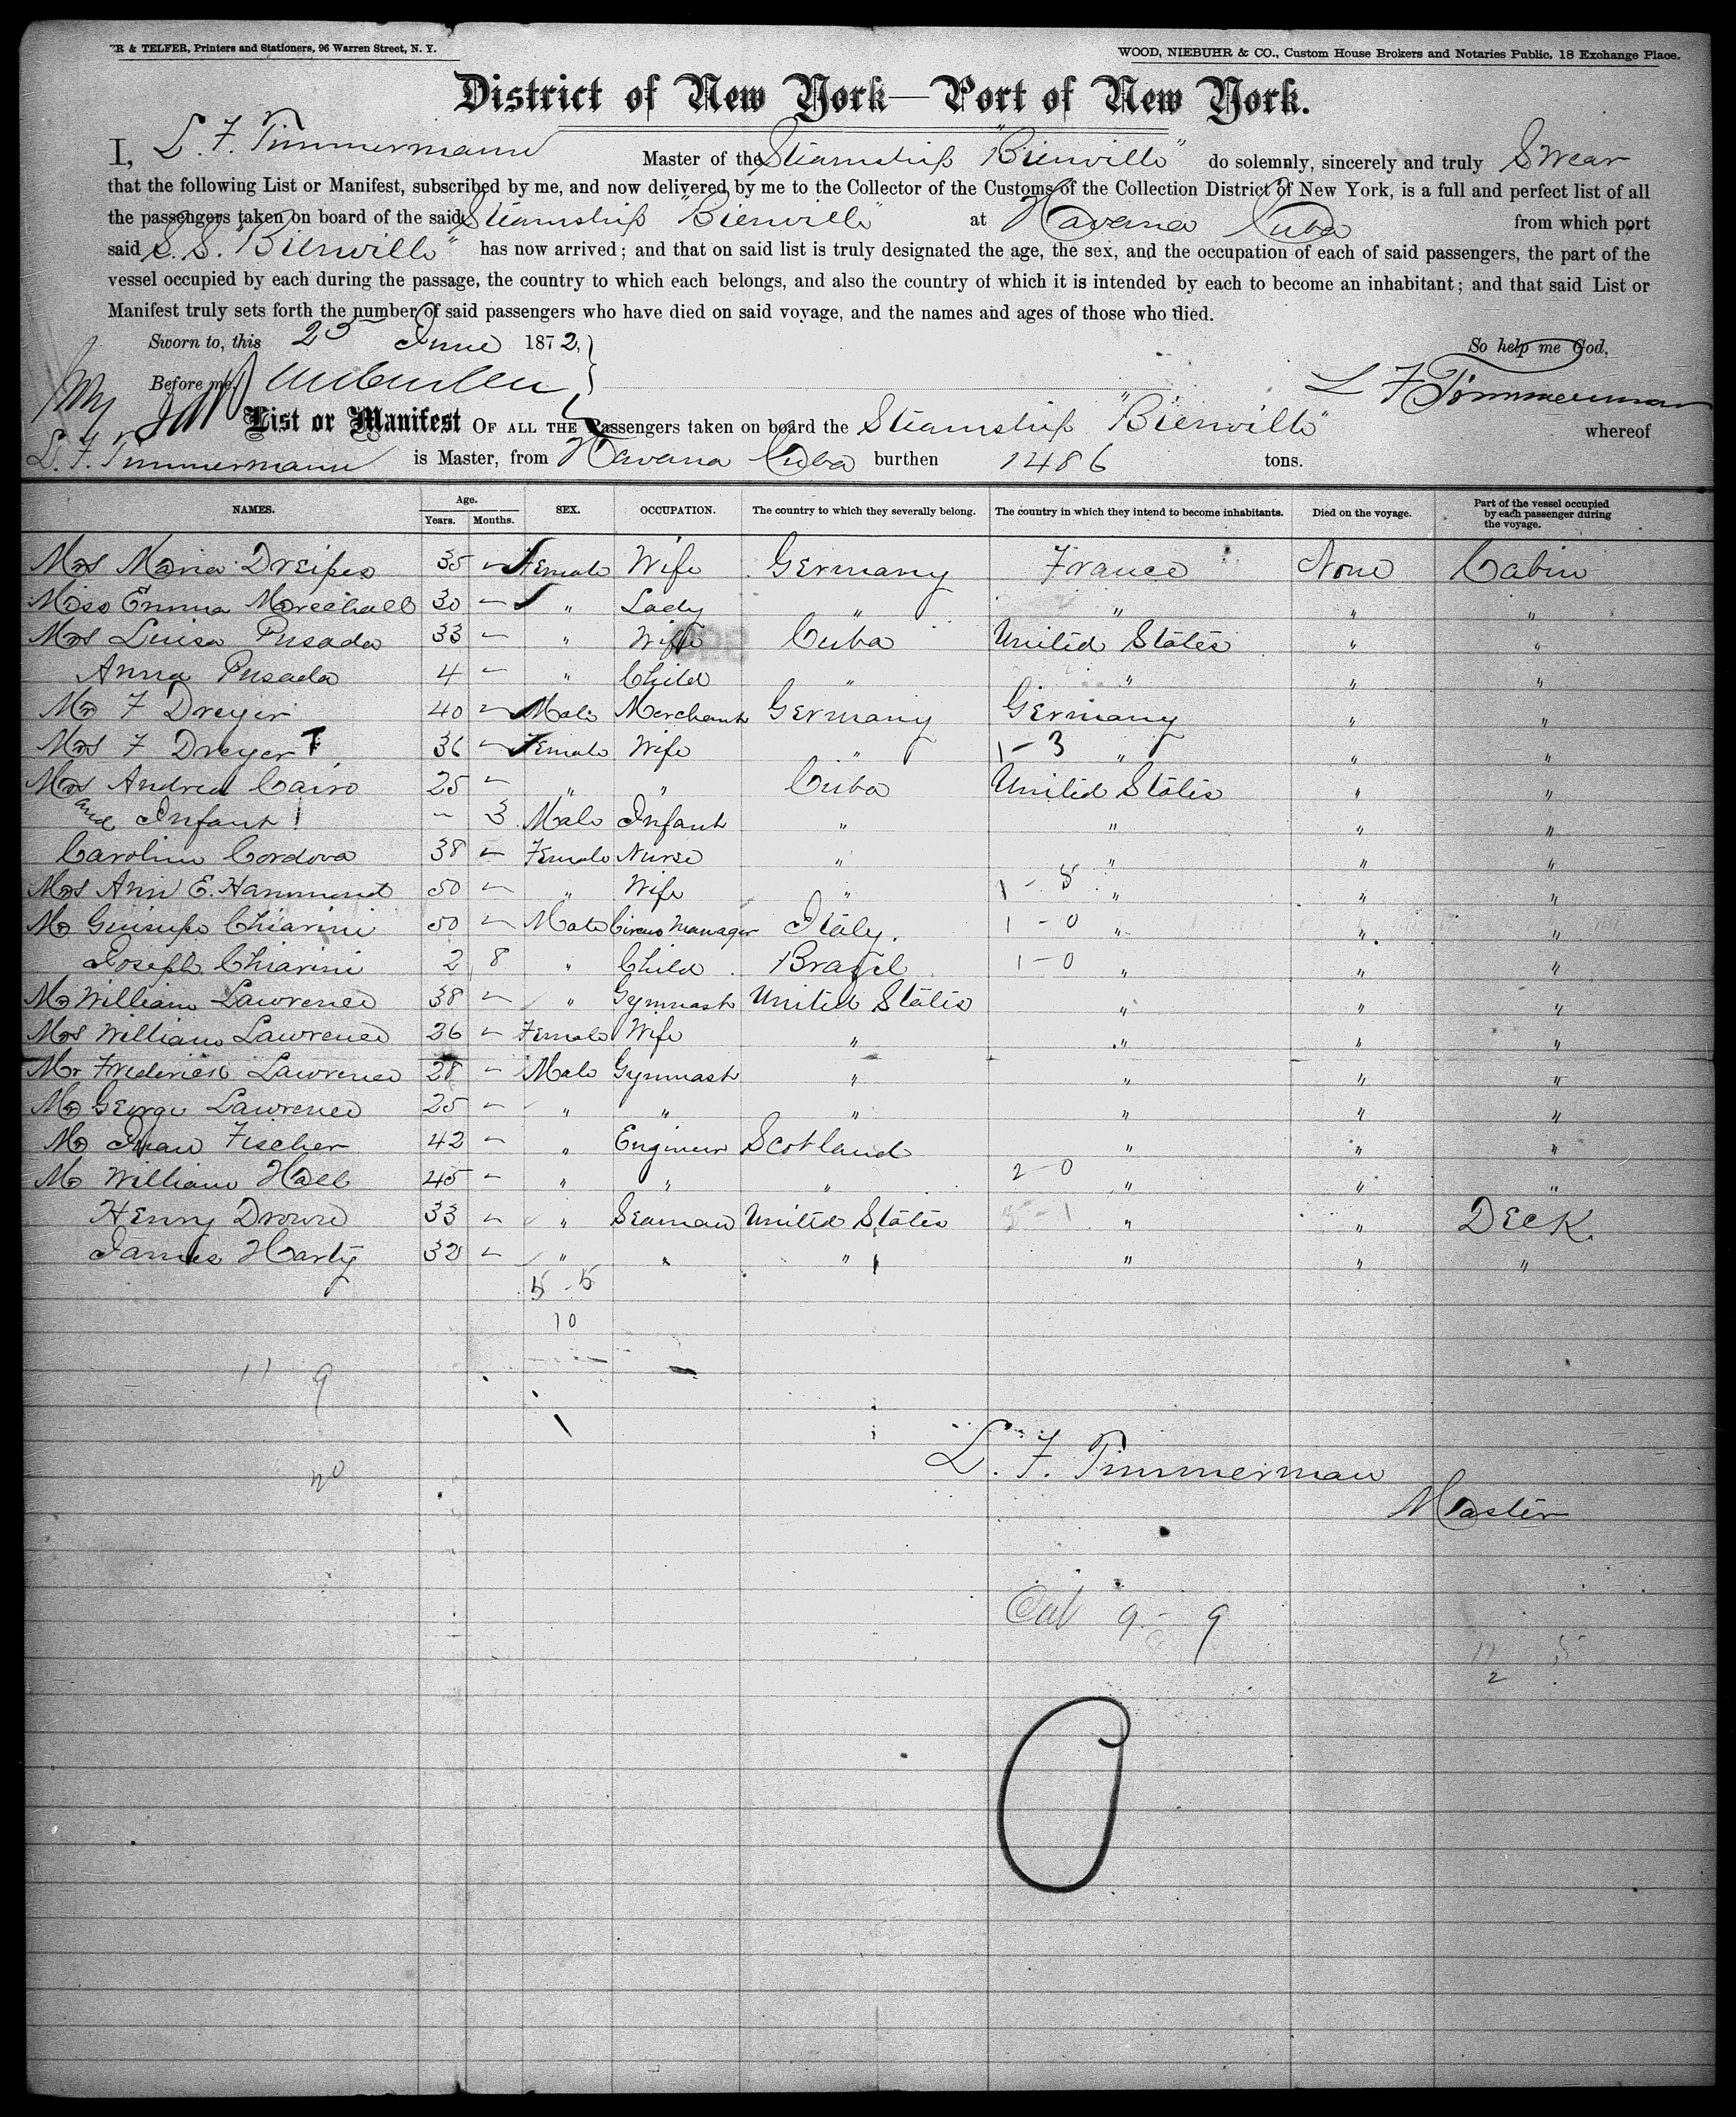 R & TELFER, Printers and Stationers, 96 Warren Street, N. Y.
WOOD, NIEBUHR & CO., Custom House Brokers and Notaries Public, 18 Exchange Place.
District of New York—Port of New York.
I, L. F. Timmermann Master of the Steamship "Bienville" do solemnly, sincerely and truly Swear
that the following List or Manifest, subscribed by me, and now delivered by me to the Collector of the Customs of the Collection District of New York, is a full and perfect list of all
the passengers taken on board of the said Steamship "Bienville" at Havana Cuba from which port
said S. S. "Bienville" has now arrived; and that on said list is truly designated the age, the sex, and the occupation of each of said passengers, the part of the
vessel occupied by each during the passage, the country to which each belongs, and also the country of which it is intended by each to become an inhabitant; and that said List or
Manifest truly sets forth the number of said passengers who have died on said voyage, and the names and ages of those who died.
Sworn to, this 25 June 1872, So help me God,
Before me, L F Timmerman
List or Manifest OF ALL THE Passengers taken on board the Steamship "Bienville" whereof
L. F. Timmermann is Master, from Havana Cuba burthen 1486 tons.
NAMES. Age. Years. Months. SEX. OCCUPATION. The country to which they severally belong. The country in which they intend to become inhabitants. Died on the voyage. Part of the vessel occupied by each passenger during the voyage.
Mrs Maria Dreipes 35 – Female Wife Germany France None Cabin
Miss Emma Marechall 30 – " Lady " " " "
Mrs Luisa Pusada 33 – " Wife Cuba United States " "
Anna Pusada 4 – " Child " " " "
Mr F Dreyer 40 – Male Merchant Germany Germany " "
Mrs F Dreyer 36 – Female Wife " 1-3 " " "
Mrs Andrea Cairo 25 – " " Cuba United States " "
and Infant – 3 Male Infant " " " "
Carolina Cordova 38 – Female Nurse " " " "
Mrs Ann E. Hammond 50 – " Wife " 1-5 " " "
Mr Guisupe Chiarini 50 – Male Circus Manager Italy. 1-0 " " "
Joseph Chiarini 2 8 " Child Brazil 1-0 " " "
Mr William Lawrence 38 – " Gymnast United States " " "
Mrs William Lawrence 26 – Female Wife " " " "
Mr Frederick Lawrence 28 – Male Gymnast " " " "
Mr George Lawrence 25 – " " " " " "
Mr Juan Fischer 42 – " Engineer Scotland " " "
Mr William Hall 45 – " " " 2-0 " " "
Henry Drowne 33 – " Seaman United States " " Deck.
James Harty 32 – " " " " " "
5-5
10
11 9
L. F. Timmerman
20
Master
9 - 9